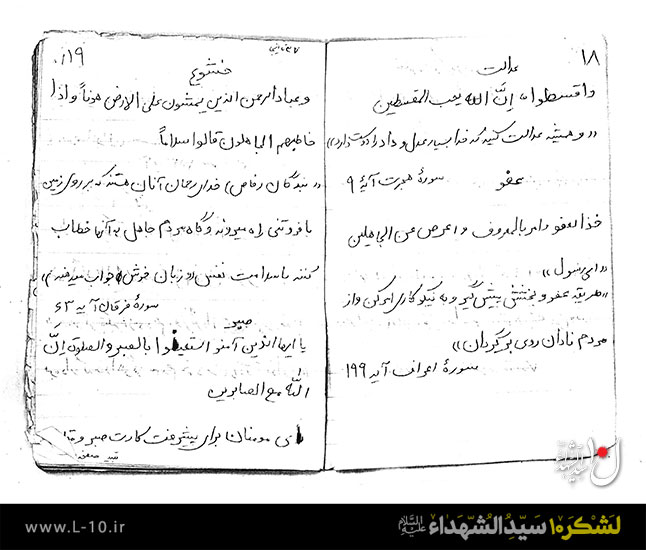 ۱۸
عدالت
واقسطوا، اِنَّ الله یحب المقسطین
«و همیشه عدالت کنید که خدا بسیار عدل و داد را دوست دارد»
سورهٔ حجرات آیهٔ ۹
عفو
خذ العفو وامر بالمعروف و اعرض عن الجاهلین
«ای رسول»
«طریقه عفو و بخشش پیش گیر و به نیکوکاری امر کن و از
مردم نادان روی برگردان»
سورهٔ اعراف آیه ۱۹۹
۱۹
خشوع
و عباد الرحمن الذین یمشون علی الارض هوناً و اذا
خاطبهم الجاهلون قالوا سلاماً
«بندگان (خاص) خدای رحمان آنان هستند که بر روی زمین
با فروتنی راه میروند و گاه مردم جاهل به آنها خطاب
کنند با سلامت نفس (و زبان خوش) جواب میدهند»
سورهٔ فرقان آیه ۶۳
صبر
یا ایها الذین آمنو استعینوا بالصبر والصلوة اِنَّ
الله مع الصابرین
ای مومنان برای پیشرفت کارت صبر و
بقیه صفحه
لشکر۱۰ سیّدُ الشهداء علیه السلام
www.L-10.ir